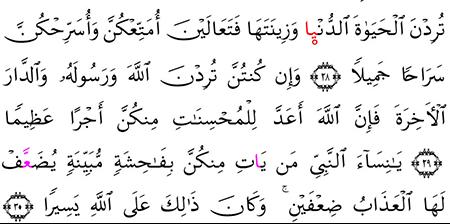 تُرِدْنَ ٱلْحَيَوٰةَ ٱلدُّنْيٜا وَزِينَتَهَا فَتَعَالَيْنَ أُمَتِّعْكُنَّ وَأُسَرِّحْكُنَّ
سَرَاحًا جَمِيلًا ۝٢٨ وَإِن كُنتُنَّ تُرِدْنَ ٱللَّهَ وَرَسُولَهُۥ وَٱلدَّارَ
ٱلْأَخِرَةَ فَإِنَّ ٱللَّهَ أَعَدَّ لِلْمُحْسِنَٰتِ مِنكُنَّ أَجْرًا عَظِيمًا
۝٢٩ يَٰنِسَآءَ ٱلنَّبِيِّ مَن يَاتِ مِنكُنَّ بِفَٰحِشَةٍ مُّبَيِّنَةٍ يُضَعَّفْ
لَهَا ٱلْعَذَابُ ضِعْفَيْنِ ۚ وَكَانَ ذَٰلِكَ عَلَى ٱللَّهِ يَسِيرًا ۝٣٠